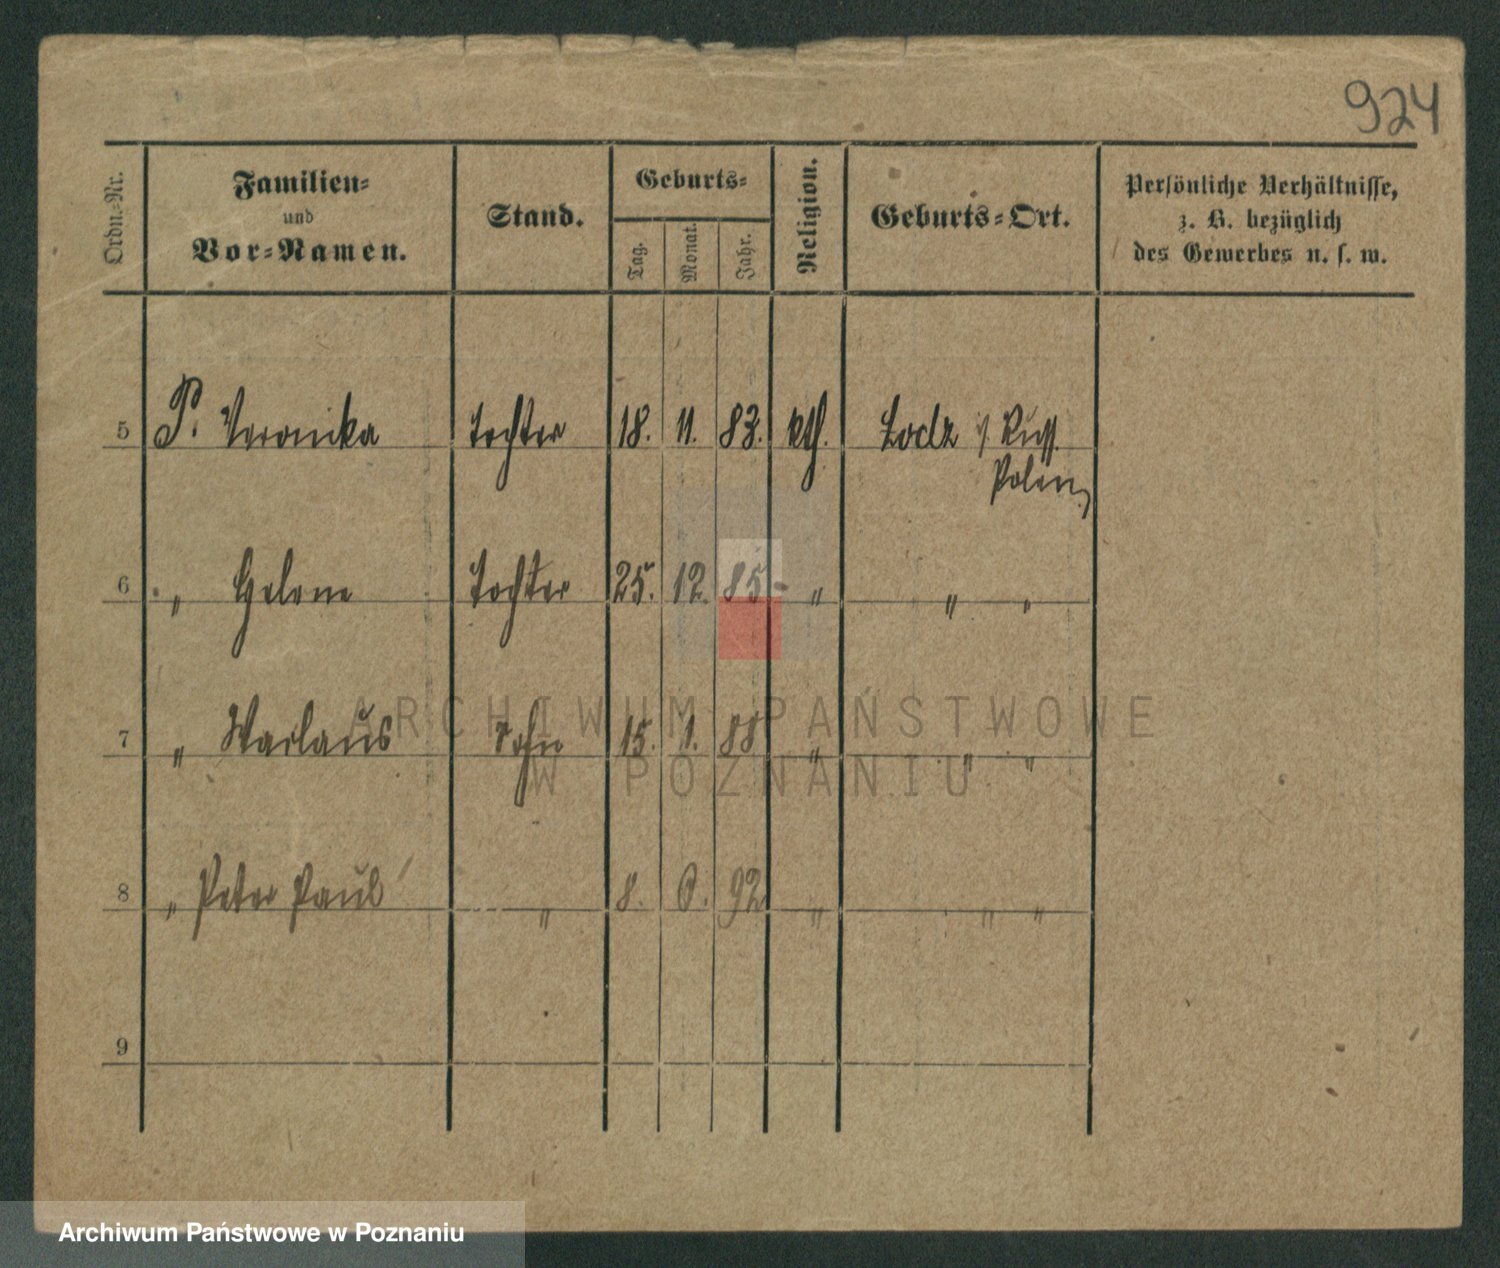 924
Ordn.-Nr.
Familien-
und
Vor-Namen.
Stand.
Geburts-
Tag.
Monat.
Jahr.
Religion.
Geburts-Ort.
Persönliche Verhältnisse,
z. B. bezüglich
des Gewerbes u. s. w.
5 P. Veronika Tochter 18. 11. 83. kth. Lodz i/ Russ.
Polen
6 " Helene Tochter 25. 12. 85 " " "
7 " Warlaus Sohn 15. 1. 88 " " "
8 " Peter Paul " 8. 6. 92 " " "
9
ARCHIWUM PAŃSTWOWE
W POZNANIU
Archiwum Państwowe w Poznaniu